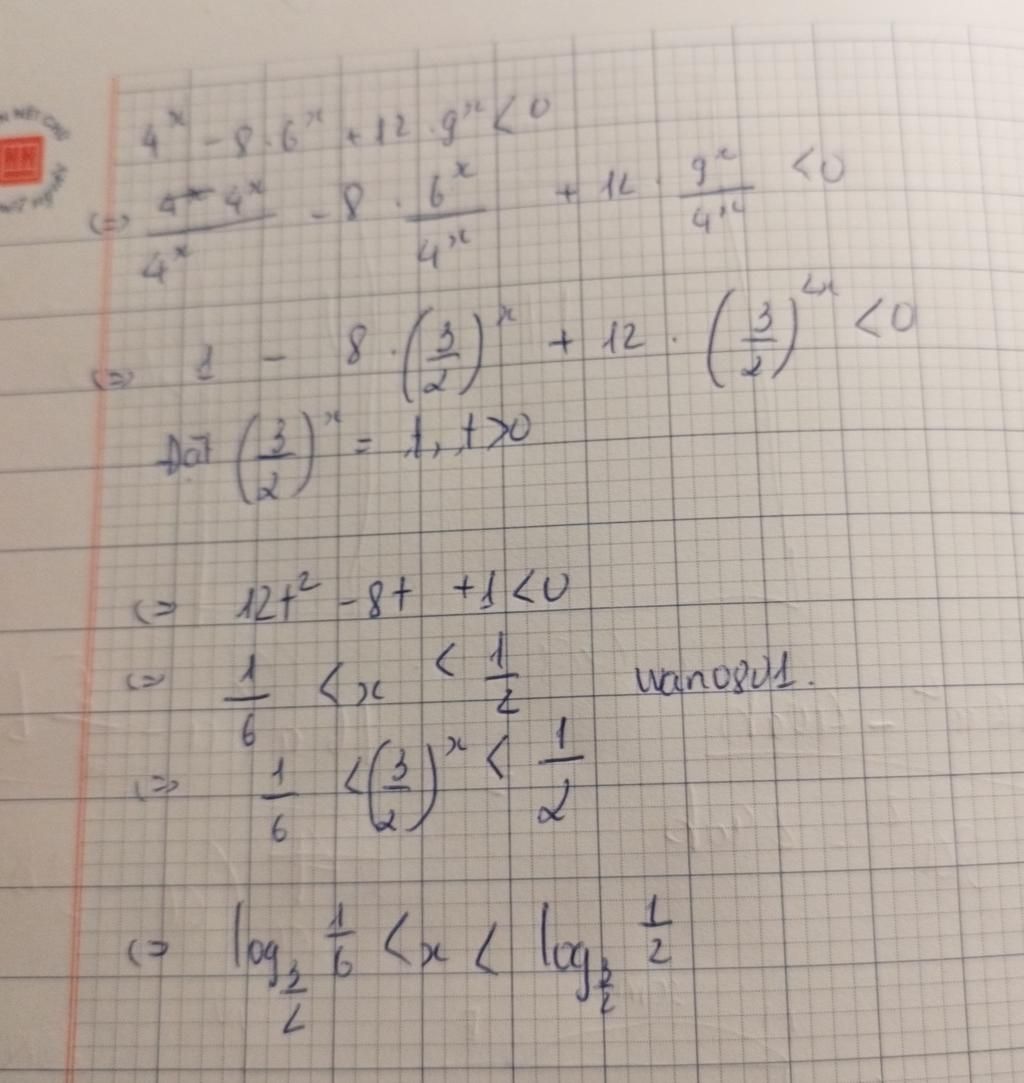 4^x - 8 · 6^x + 12 · 9^x < 0
(=) 4^x/4^x - 8 · 6^x/4^x + 12 · 9^x/4^x < 0
(=) 1 - 8 · (3/2)^x + 12 · (3/2)^2x < 0
Đặt (3/2)^x = t, t>0
(=) 12t² - 8t + 1 < 0
(=) 1/6 < x < 1/2 wano801.
(=) 1/6 < (3/2)^x < 1/2
(=) log_3/2 1/6 < x < log_3/2 1/2